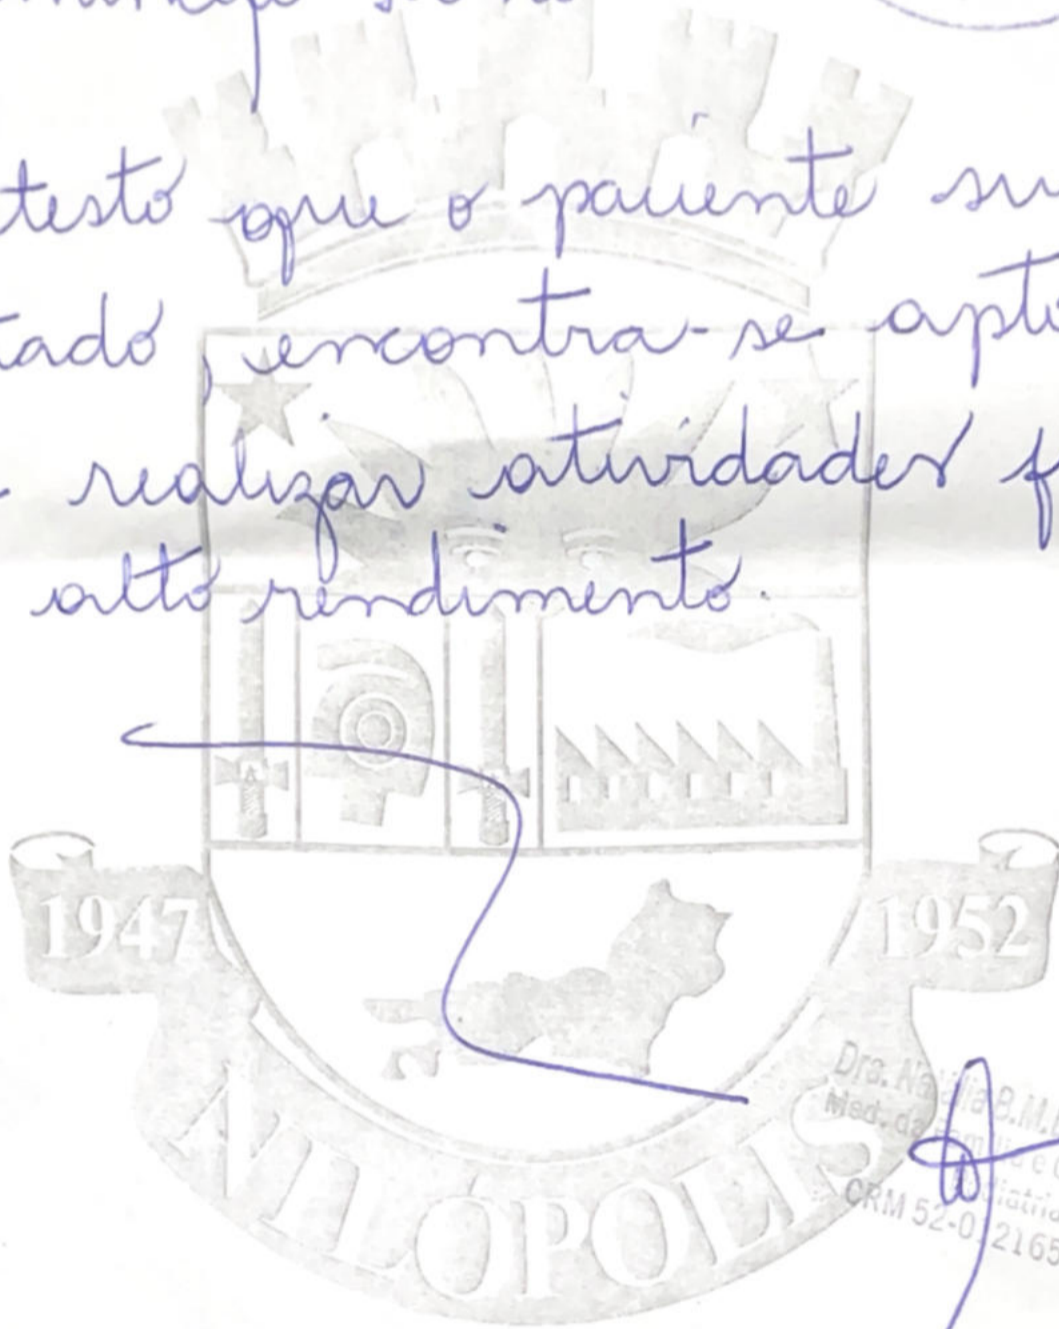 testo que o paciente su
tado, encontra-se apto
realizar atividades f
alto rendimento.
1947 1952
NILÓPOLIS
Dra. B.M.
Med. da
CRM 52-0 2165